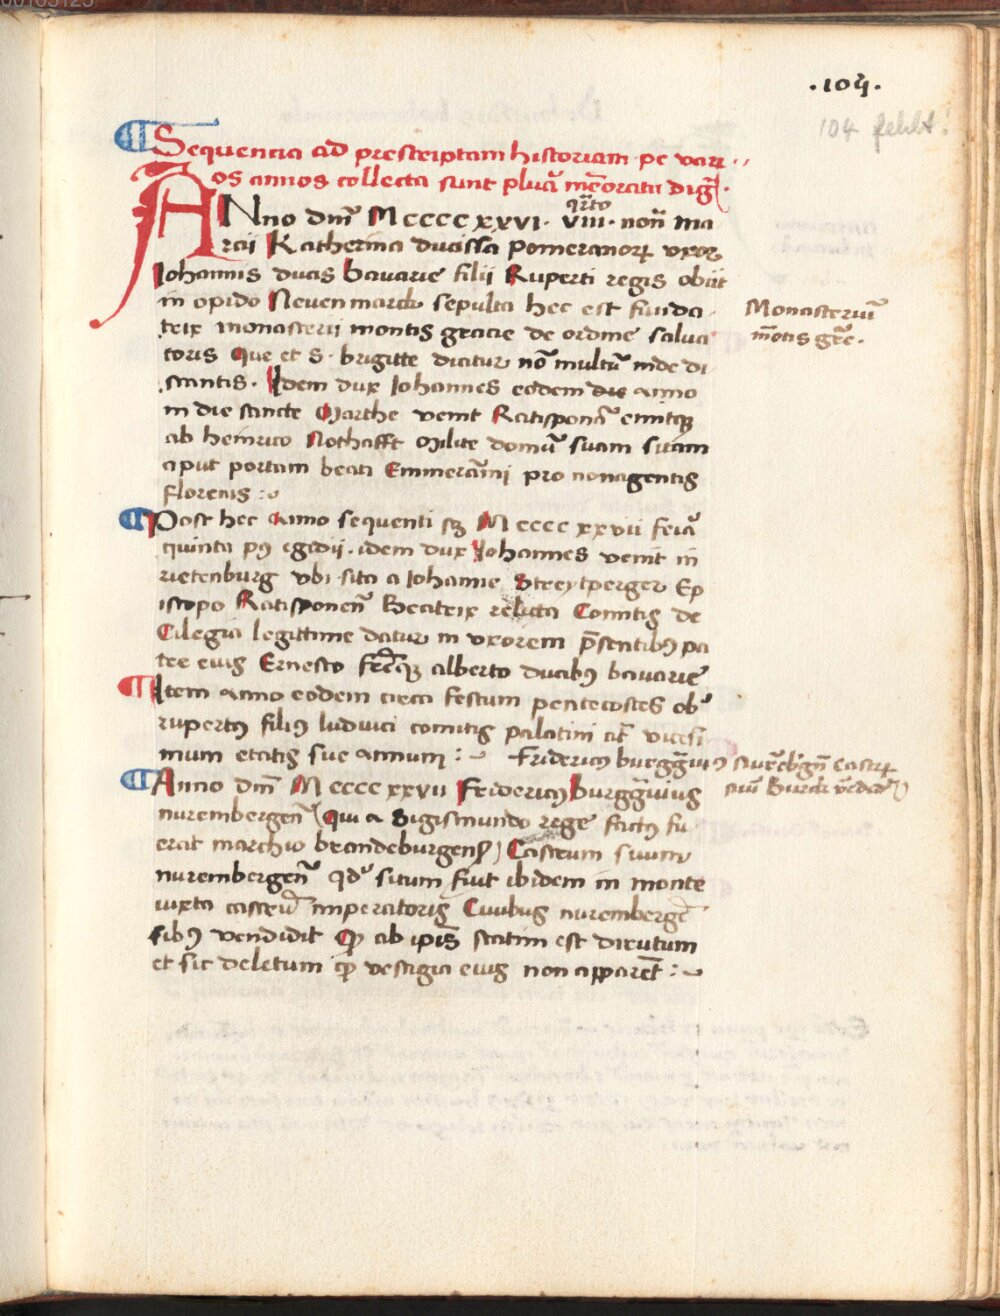 .105.
104 fehlt!
Sequencia ad prescriptam historiam pe vari
os annos collecta sunt plura memoratu dig.
ANno dnī Mccccxxvi. qrto viii. nonas ma
rcii Katherina ducissa Pomeranorꝝ vxor
Iohannis ducis bavarie filii Ruperti regis obiit
in opido Nevenmarck sepulta hec est funda
trix monasterii montis gracie de ordine salva
Monasteriū
mōtis grē.
toris Que et S. brigitte dicitur nō multū inde di
stantis. Idem dux Iohannes eodem anno
in die sancte Marthe venit Ratisponā emitqꝫ
ab heinrico Nothafft Milite domū suam sitam
aput portam beati Emmerāmi pro nonagentis
florenis :~
Post hec Anno sequenti sꝫ Mccccxxvii feria
quinta pꝰ egidii. idem dux Iohannes venit in
rietenburg vbi sita a Iohanne Streytperger Ep
iscopo Ratisponenn̄ Beatrix relicta Comitis de
Cilegia legittime datur in vxorem p̄sentibꝰ pa
tre eius Ernesto fr̄eqꝫ alberto ducibꝰ bavarie
Item Anno eodem circa festum pentecostes ob
rupertꝰ filiꝰ ludvici comitis palatini cit̄ vicesi
mum etatis sue annum :~ fridericꝰ burggraviꝰ
nūrēb'gn̄ castrꝝ
suū Burck vēdidꝫ
Anno dnī Mccccxxvii Fridericꝰ burggravius
nurembergen̄ (Qui a Sigismundo rege factꝰ fu
erat marchio brandeburgen̄) Castrum suum
nurembergen̄ qd' situm fuit ibidem in monte
iuxta castrū imperatoris Civibus nurembergē
sibꝰ vendidit Qꝫ ab ipsīs statim est dirutum
et sic deletum qꝫ vestigia eius non apparēt :~